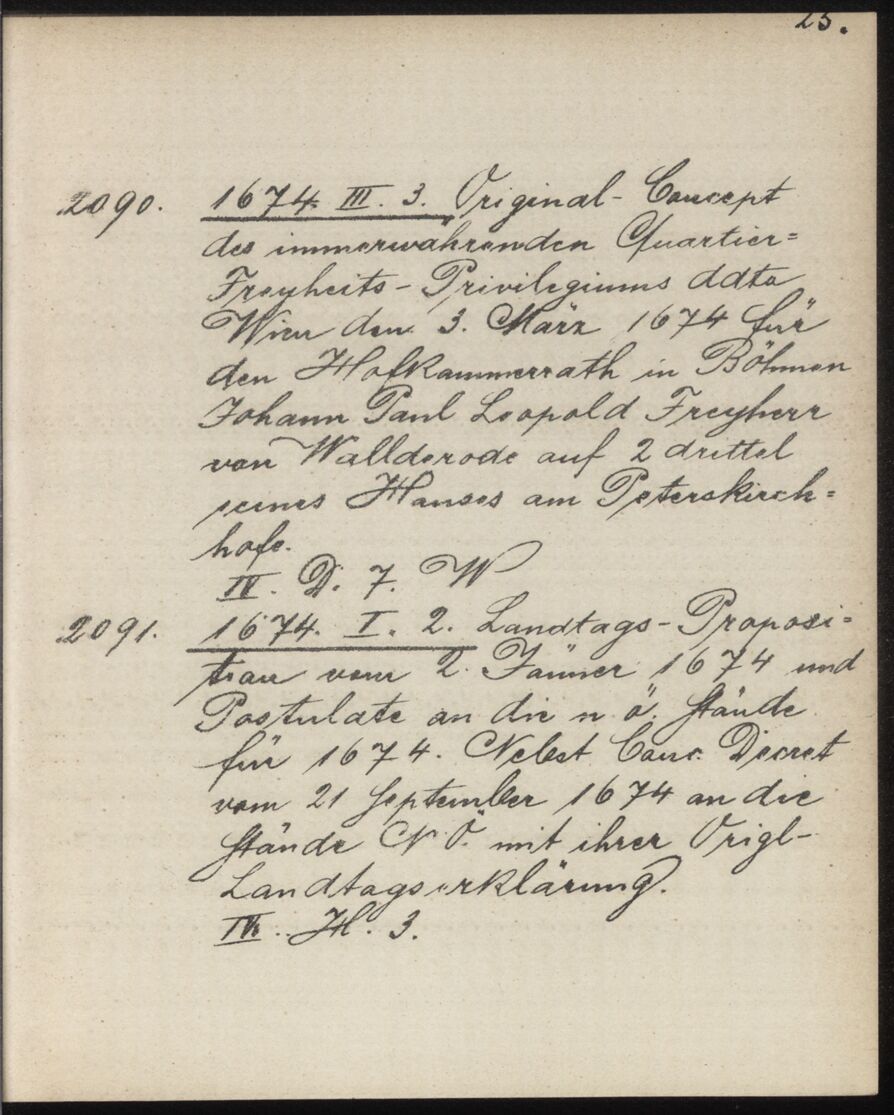 25.
2090. 1674 III. 3. Original-Concept
des immerwährenden Quartier=
Freyheits-Privilegiums ddto
Wien den 3. März 1674 für
den Hofkammerrath in Böhmen
Johann Paul Leopold Freyherr
von Wallderode auf 2 drittel
seines Hauses am Peterskirch=
hofe.
IV. D. 7. W
2091. 1674. I. 2. Landtags-Proposi=
tion vom 2. Jänner 1674 und
Postulate an die n. ö. Stände
für 1674. Nebst Conc. Decret
vom 21 September 1674 an die
Stände N. Ö. mit ihrer Origl-
Landtagserklärung.
IV. H. 3.